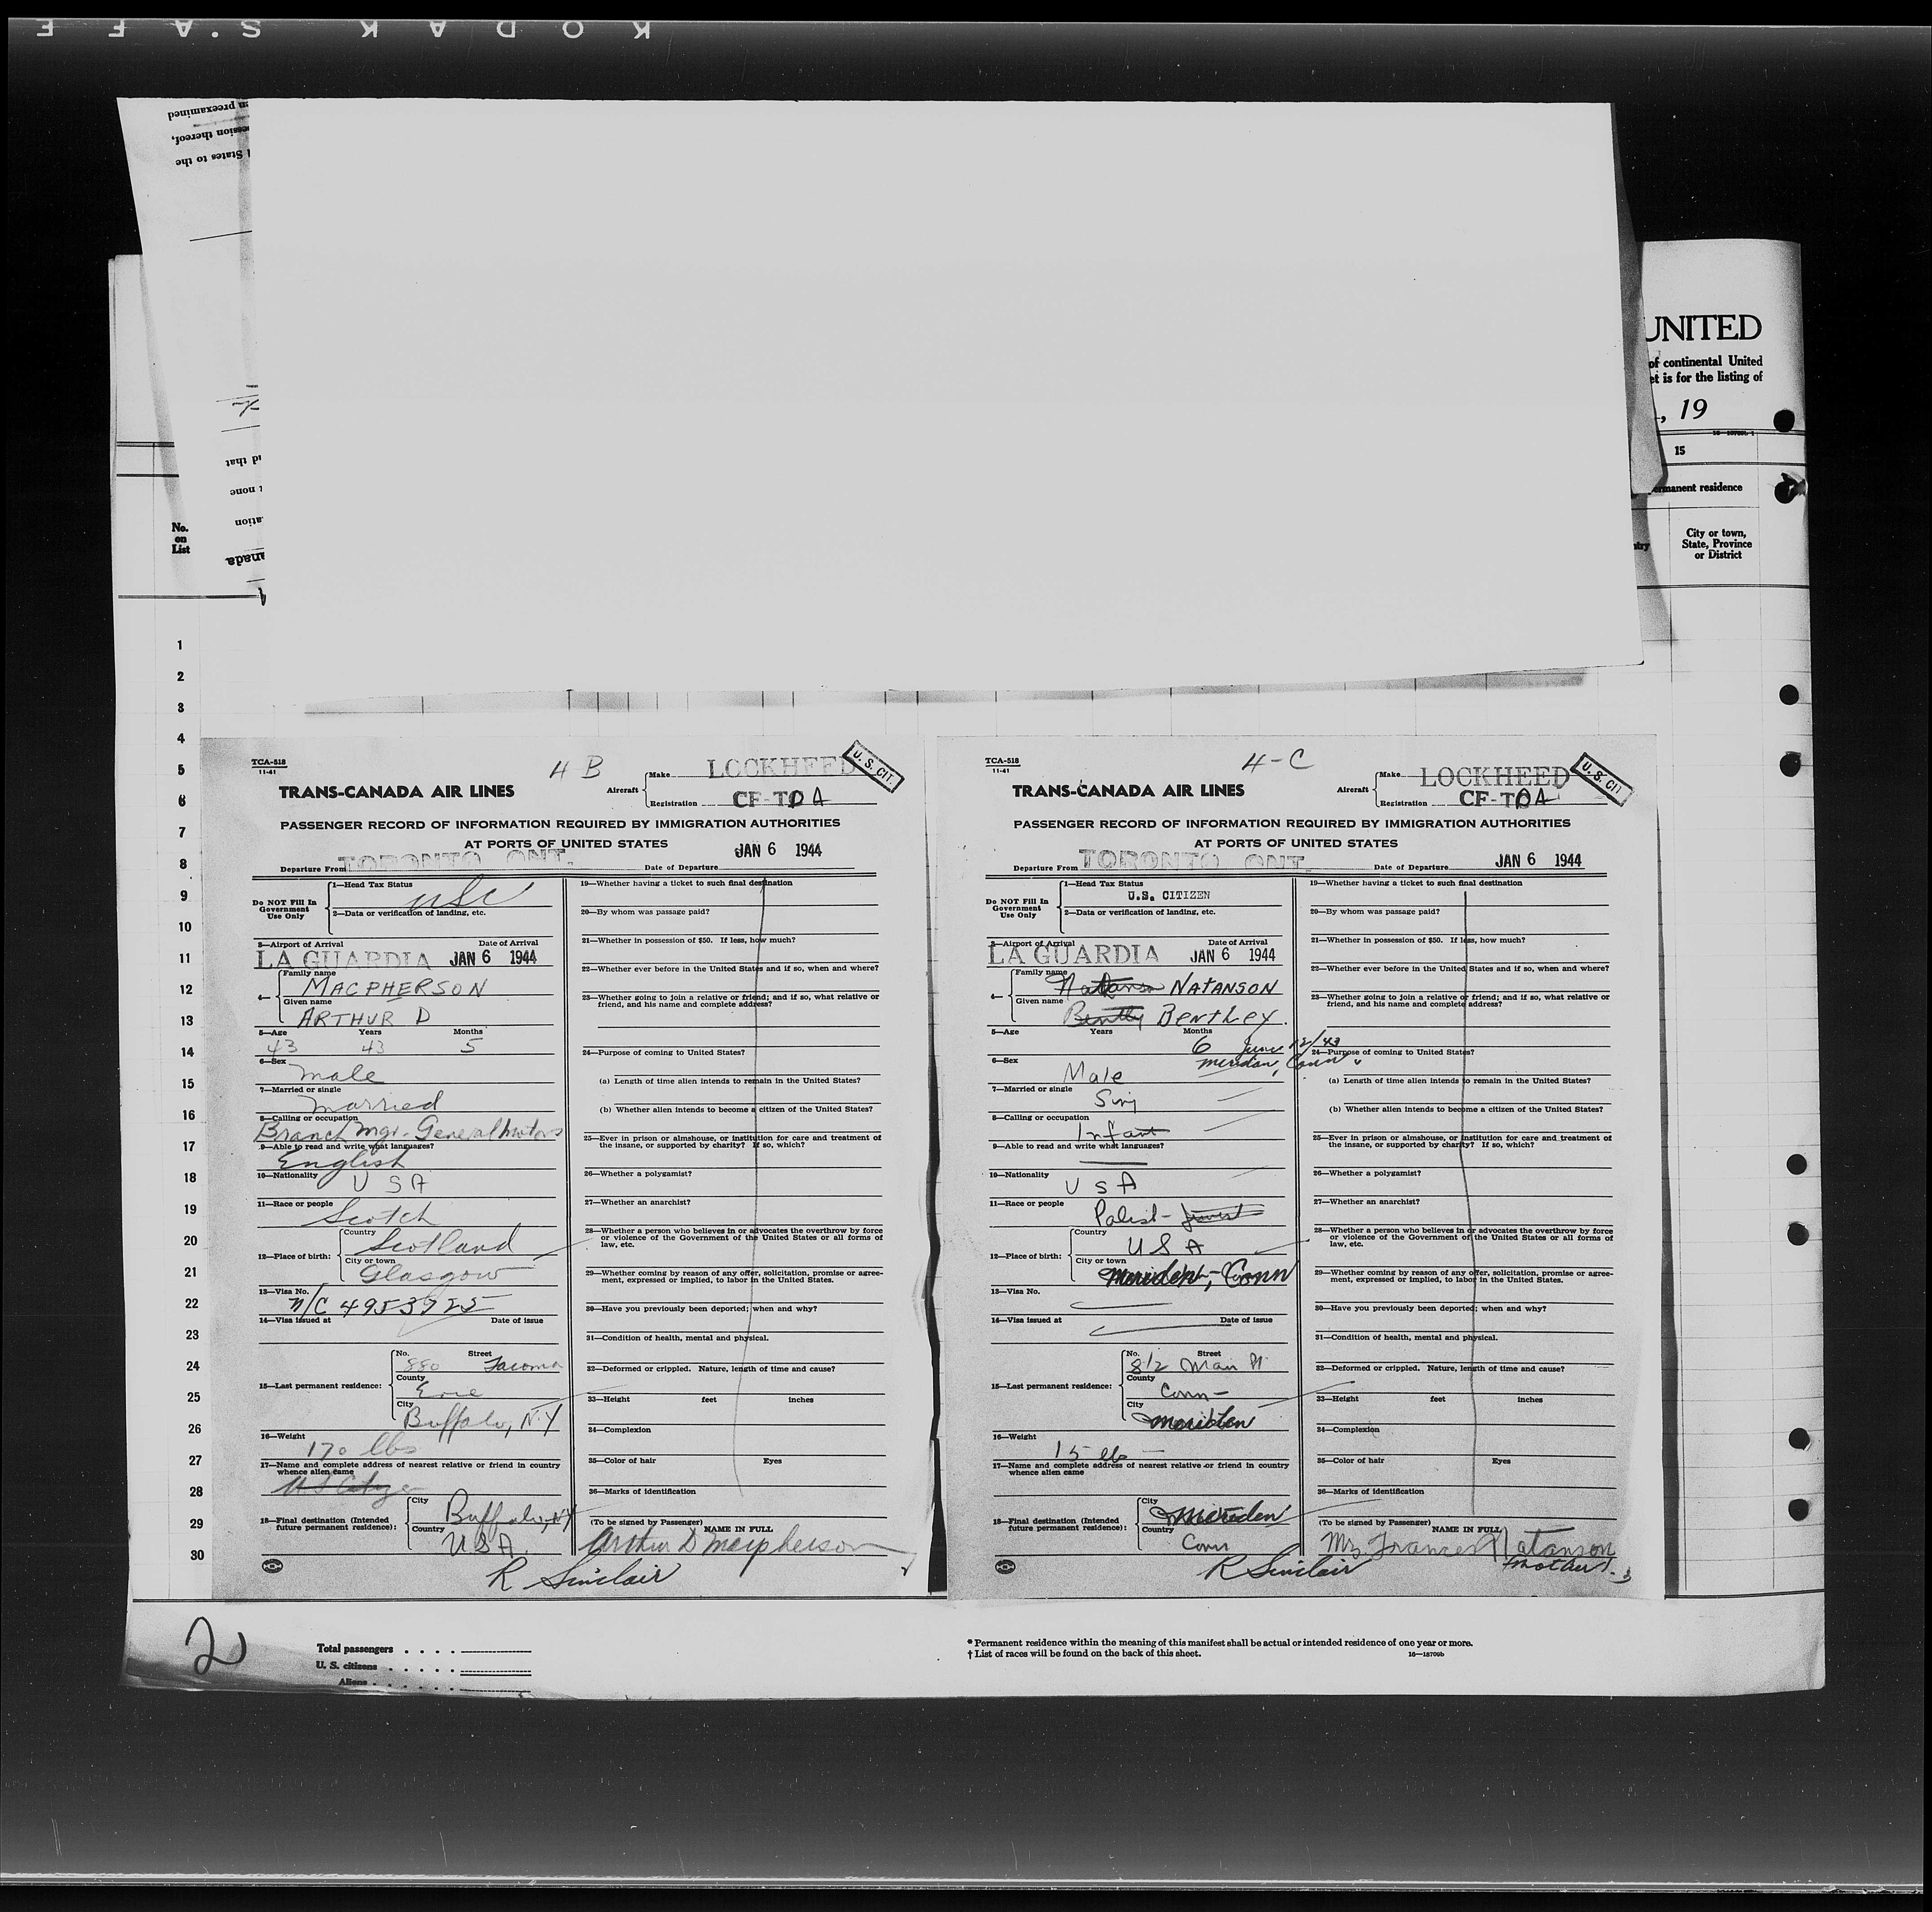 KODAK S.A F E
n preexamined
ssion thereof,
d States to the
nd that
t none
ation
anada
UNITED
of continental United
et is for the listing of
, 19
15
ermanent residence
City or town,
State, Province
or District
No.
on
List
1
2
3
4
5
6
7
8
9
10
11
12
13
14
15
16
17
18
19
20
21
22
23
24
25
26
27
28
29
30
TCA-518
11-41
4 B
TRANS-CANADA AIR LINES
Aircraft
Make LOCKHEED
U. S. CIT.
Registration CF-TDA
PASSENGER RECORD OF INFORMATION REQUIRED BY IMMIGRATION AUTHORITIES
AT PORTS OF UNITED STATES
Departure From TORONTO ONT.
Date of Departure JAN 6 1944
Do NOT Fill In
Government
Use Only
1—Head Tax Status
USC
2—Data or verification of landing, etc.
3—Airport of Arrival Date of Arrival
LA GUARDIA JAN 6 1944
4— Family name
MACPHERSON
Given name
ARTHUR D
5—Age Years Months
43 43 5
6—Sex
Male
7—Married or single
Married
8—Calling or occupation
Branch Mgr. General Motors
9—Able to read and write what languages?
English
10—Nationality
U S A
11—Race or people
Scotch
12—Place of birth:
Country
Scotland
City or town
Glasgow
13—Visa No.
N/C 4953725
14—Visa issued at Date of issue
15—Last permanent residence:
No. Street
880 Tacoma
County
Erie
City
Buffalo, N.Y
16—Weight
170 lbs
17—Name and complete address of nearest relative or friend in country
whence alien came
18—Final destination (Intended
future permanent residence):
City
Buffalo, NY
Country
U.S.A.
19—Whether having a ticket to such final destination
20—By whom was passage paid?
21—Whether in possession of $50. If less, how much?
22—Whether ever before in the United States and if so, when and where?
23—Whether going to join a relative or friend; and if so, what relative or
friend, and his name and complete address?
24—Purpose of coming to United States?
(a) Length of time alien intends to remain in the United States?
(b) Whether alien intends to become a citizen of the United States?
25—Ever in prison or almshouse, or institution for care and treatment of
the insane, or supported by charity? If so, which?
26—Whether a polygamist?
27—Whether an anarchist?
28—Whether a person who believes in or advocates the overthrow by force
or violence of the Government of the United States or all forms of
law, etc.
29—Whether coming by reason of any offer, solicitation, promise or agree-
ment, expressed or implied, to labor in the United States.
30—Have you previously been deported; when and why?
31—Condition of health, mental and physical.
32—Deformed or crippled. Nature, length of time and cause?
33—Height feet inches
34—Complexion
35—Color of hair Eyes
36—Marks of identification
(To be signed by Passenger) NAME IN FULL
Arthur D Macpherson
R Sinclair
TCA-518
11-41
4-C
TRANS-CANADA AIR LINES
Aircraft
Make LOCKHEED
U. S. CIT
Registration CF-TDA
PASSENGER RECORD OF INFORMATION REQUIRED BY IMMIGRATION AUTHORITIES
AT PORTS OF UNITED STATES
Departure From TORONTO ONT
Date of Departure JAN 6 1944
Do NOT Fill In
Government
Use Only
1—Head Tax Status
U.S. CITIZEN
2—Data or verification of landing, etc.
3—Airport of Arrival Date of Arrival
LA GUARDIA JAN 6 1944
4— Family name
Natanson NATANSON
Given name
Bently BENTLEY.
5—Age Years Months
6 June 12/43
Meriden, Conn
6—Sex
Male
7—Married or single
Sing
8—Calling or occupation
Infant
9—Able to read and write what languages?
10—Nationality
U S A
11—Race or people
Polish-
12—Place of birth:
Country
U S A
City or town
Meriden, Conn
13—Visa No.
14—Visa issued at Date of issue
15—Last permanent residence:
No. Street
812 Main St
County
Conn-
City
Meriden
16—Weight
15 lbs
17—Name and complete address of nearest relative or friend in country
whence alien came
18—Final destination (Intended
future permanent residence):
City
Meriden
Country
Conn
19—Whether having a ticket to such final destination
20—By whom was passage paid?
21—Whether in possession of $50. If less, how much?
22—Whether ever before in the United States and if so, when and where?
23—Whether going to join a relative or friend; and if so, what relative or
friend, and his name and complete address?
24—Purpose of coming to United States?
(a) Length of time alien intends to remain in the United States?
(b) Whether alien intends to become a citizen of the United States?
25—Ever in prison or almshouse, or institution for care and treatment of
the insane, or supported by charity? If so, which?
26—Whether a polygamist?
27—Whether an anarchist?
28—Whether a person who believes in or advocates the overthrow by force
or violence of the Government of the United States or all forms of
law, etc.
29—Whether coming by reason of any offer, solicitation, promise or agree-
ment, expressed or implied, to labor in the United States.
30—Have you previously been deported; when and why?
31—Condition of health, mental and physical.
32—Deformed or crippled. Nature, length of time and cause?
33—Height feet inches
34—Complexion
35—Color of hair Eyes
36—Marks of identification
(To be signed by Passenger) NAME IN FULL
Mrs. Frances Natanson
R Sinclair
2
Total passengers
U. S. citizens
Aliens
* Permanent residence within the meaning of this manifest shall be actual or intended residence of one year or more.
† List of races will be found on the back of this sheet.
16—18709b